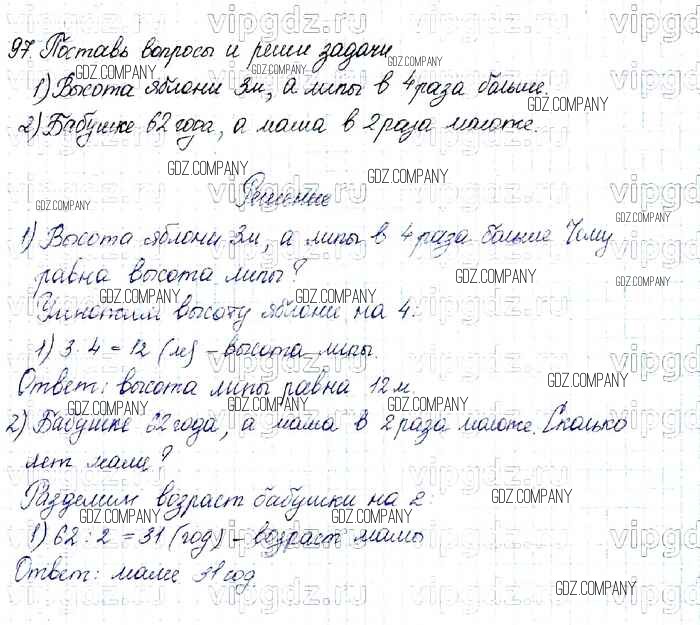 97. Поставь вопросы и реши задачи
1) Высота яблони 3м, а липы в 4 раза больше.
2) Бабушке 62 года, а мама в 2 раза моложе.
Решение
1) Высота яблони 3м, а липы в 4 раза больше Чему
равна высота липы?
Умножим высоту яблони на 4:
1) 3·4=12 (м) – высота липы.
Ответ: высота липы равна 12м.
2) Бабушке 62 года, а мама в 2 раза моложе. Сколько
лет маме?
Разделим возраст бабушки на 2
1) 62:2=31 (год) – возраст мамы
Ответ: маме 31 год
vipgdz.ru
GDZ.COMPANY